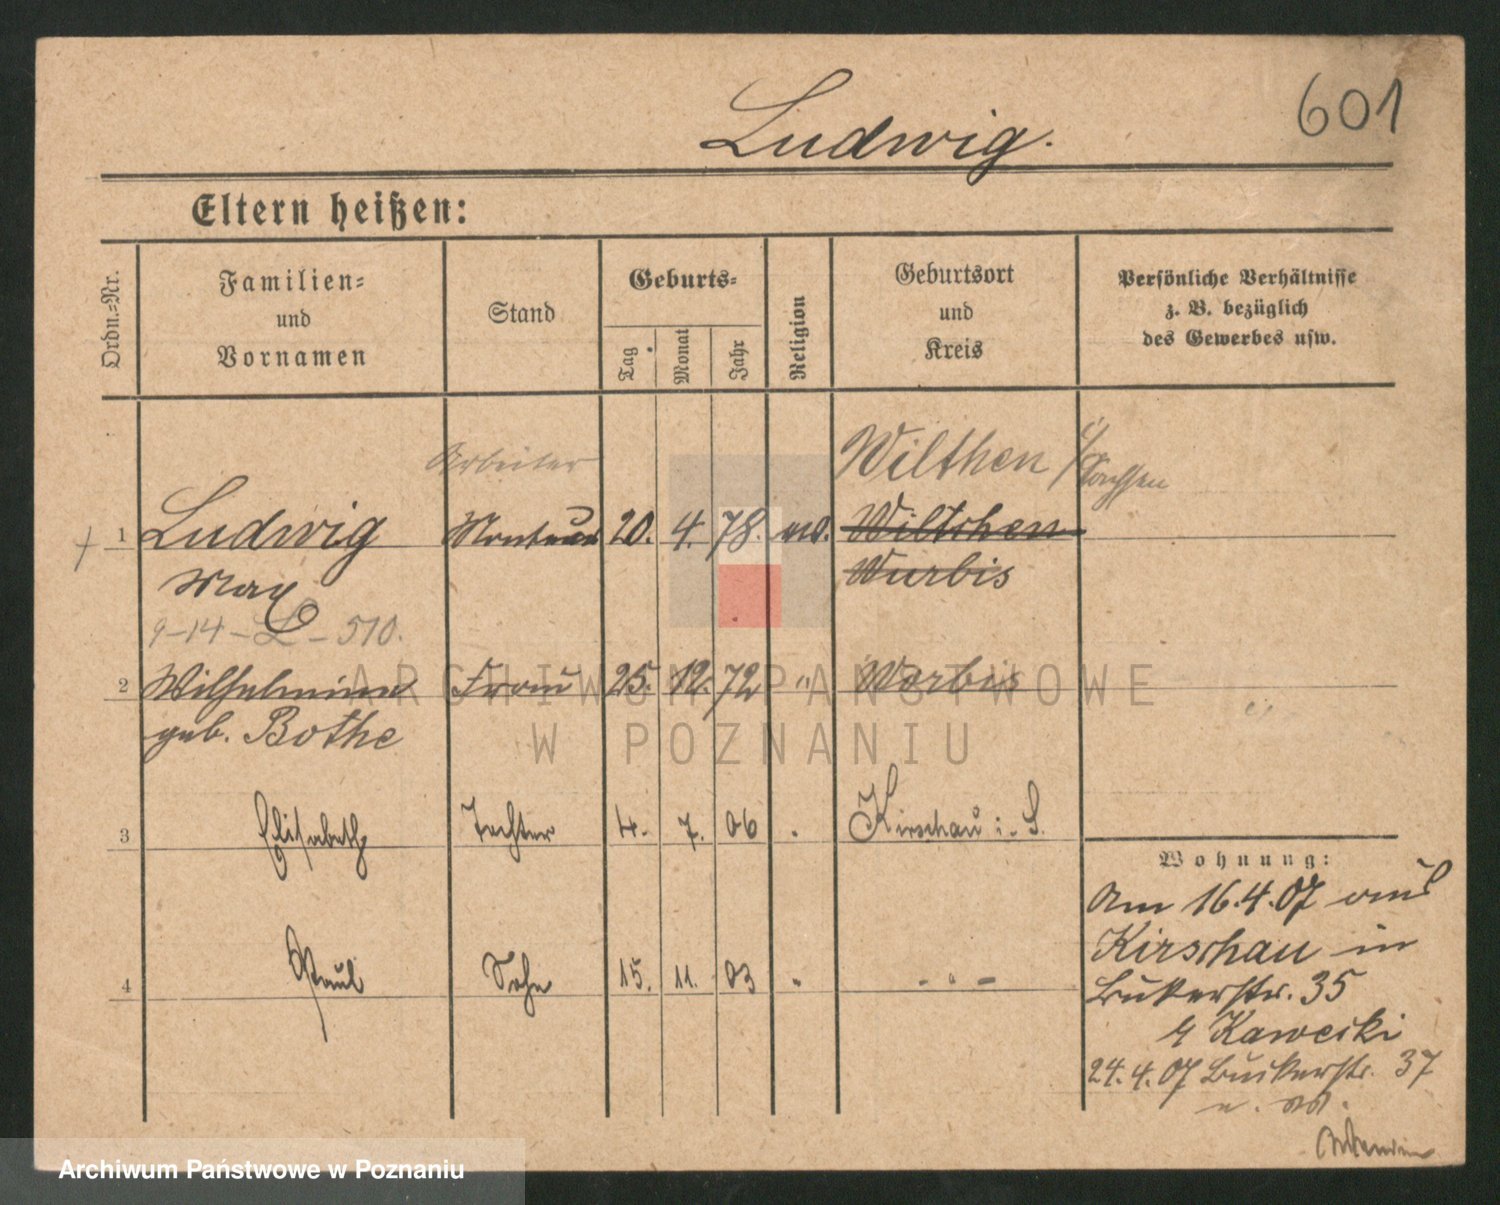 601
Ludwig.
Eltern heißen:
Ordn.-Nr.
Familien-
und
Vornamen
Stand
Geburts-
Tag
Monat
Jahr
Religion
Geburtsort
und
Kreis
Persönliche Verhältnisse
z. B. bezüglich
des Gewerbes usw.
Arbeiter Wilthen i/
Sachsen
1 Ludwig Monteur 20. 4. 78. Wiltschen
Max Wurbis
9-14-L-510.
2 Wilhelmine Frau 25. 12. 72 " Worbis
geb. Bothe
3 Elisabeth Tochter 4. 7. 06 Kirschau i. S.
4 Paul Sohn 15. 11. 03
Wohnung:
Am 16.4.07 aus
Kirschau in
Bukerstr. 35
Kawecki
24.4.07 Bukerstr. 37
ARCHIWUM PAŃSTWOWE
W POZNANIU
Archiwum Państwowe w Poznaniu